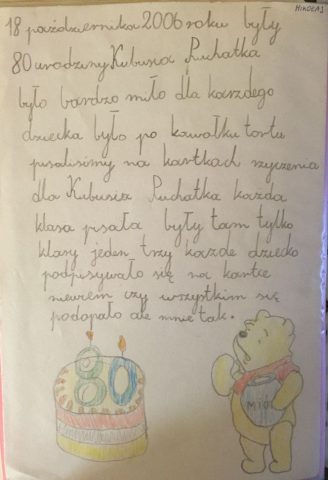 MIKOŁAJ
18 października 2006 roku były
80 urodziny Kubusia Puchatka
było bardzo miło dla karzdego
dziecka było po kawałku tortu
pisalisimy na kartkach rzyczenia
dla Kubusia Puchatka karzda
klasa pisała były tam tylko
klasy jeden trzy karzde dziecko
podpisywało się na kartce
niewiem czy wszystkim się
podopało ale mnie tak.
80
MIÓD